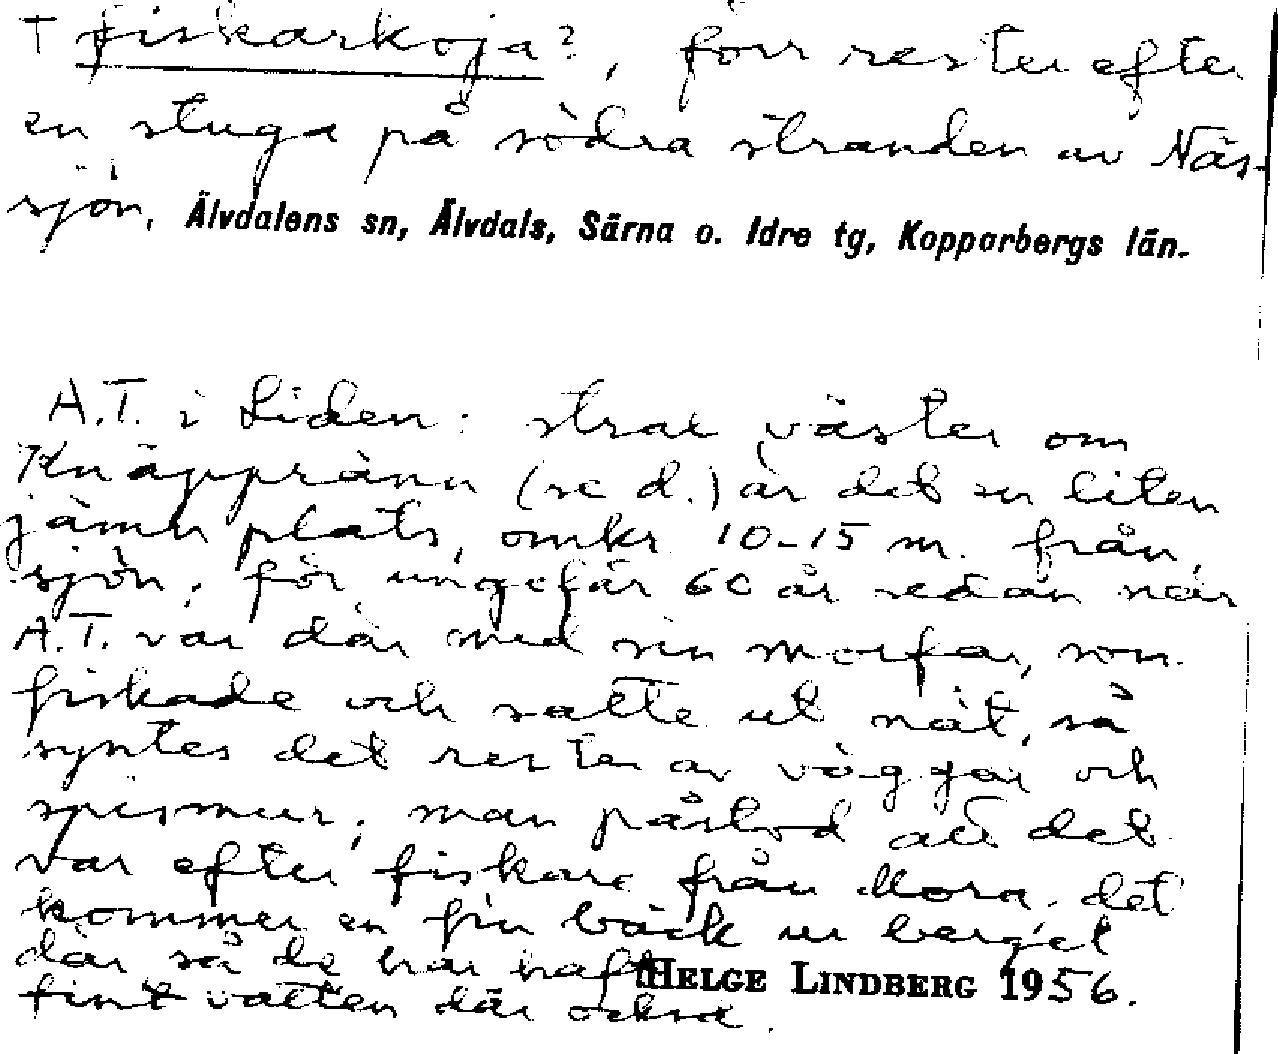 † fiskarkoja?, förr rester efter
en stuga på södra stranden av Näs-
sjön, Älvdalens sn, Älvdals, Särna o. Idre tg, Kopparbergs län.
A.T. i Liden: strax väster om
Knäppränn (se d.) är det en liten
jämn plats, omkr. 10-15 m. från
sjön; för ungefär 60 år sedan när
A.T. var där med sin morfar, som
fiskade och satte ut nät, så
syntes det rester av väggar och
spismur; man påstod att det
var efter fiskare från Mora. det
kommer en fin bäck ur berget
där så de har haft
HELGE LINDBERG 1956.
fint vatten där också.